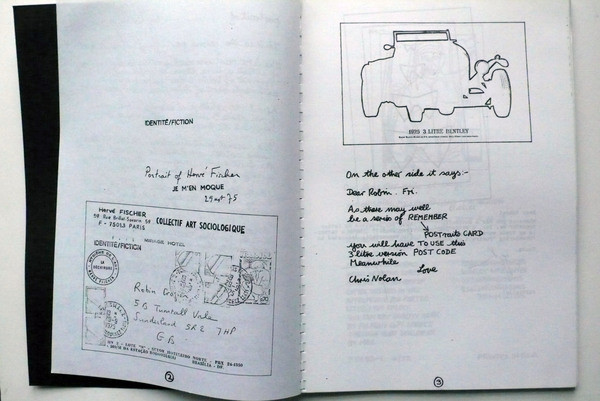 IDENTITÉ/FICTION
Portrait of Hervé Fischer
JE M'EN MOQUE
HERVÉ FISCHER
F - 75013 PARIS
COLLECTIF ART SOCIOLOGIQUE
IDENTITÉ/FICTION
MIRAGE HOTEL
Robin
5B Tunstall Vale
Sunderland SR2 7HP
G.B.
2
1929 3 LITRE BENTLEY
On the other side it says:-
Dear Robin. Fri.
As there may well
be a series of REMEMBER
POST-route CARD
you will have TO USE this
3 litre version POST CODE
Meanwhile
Love
Chris Nolan
3